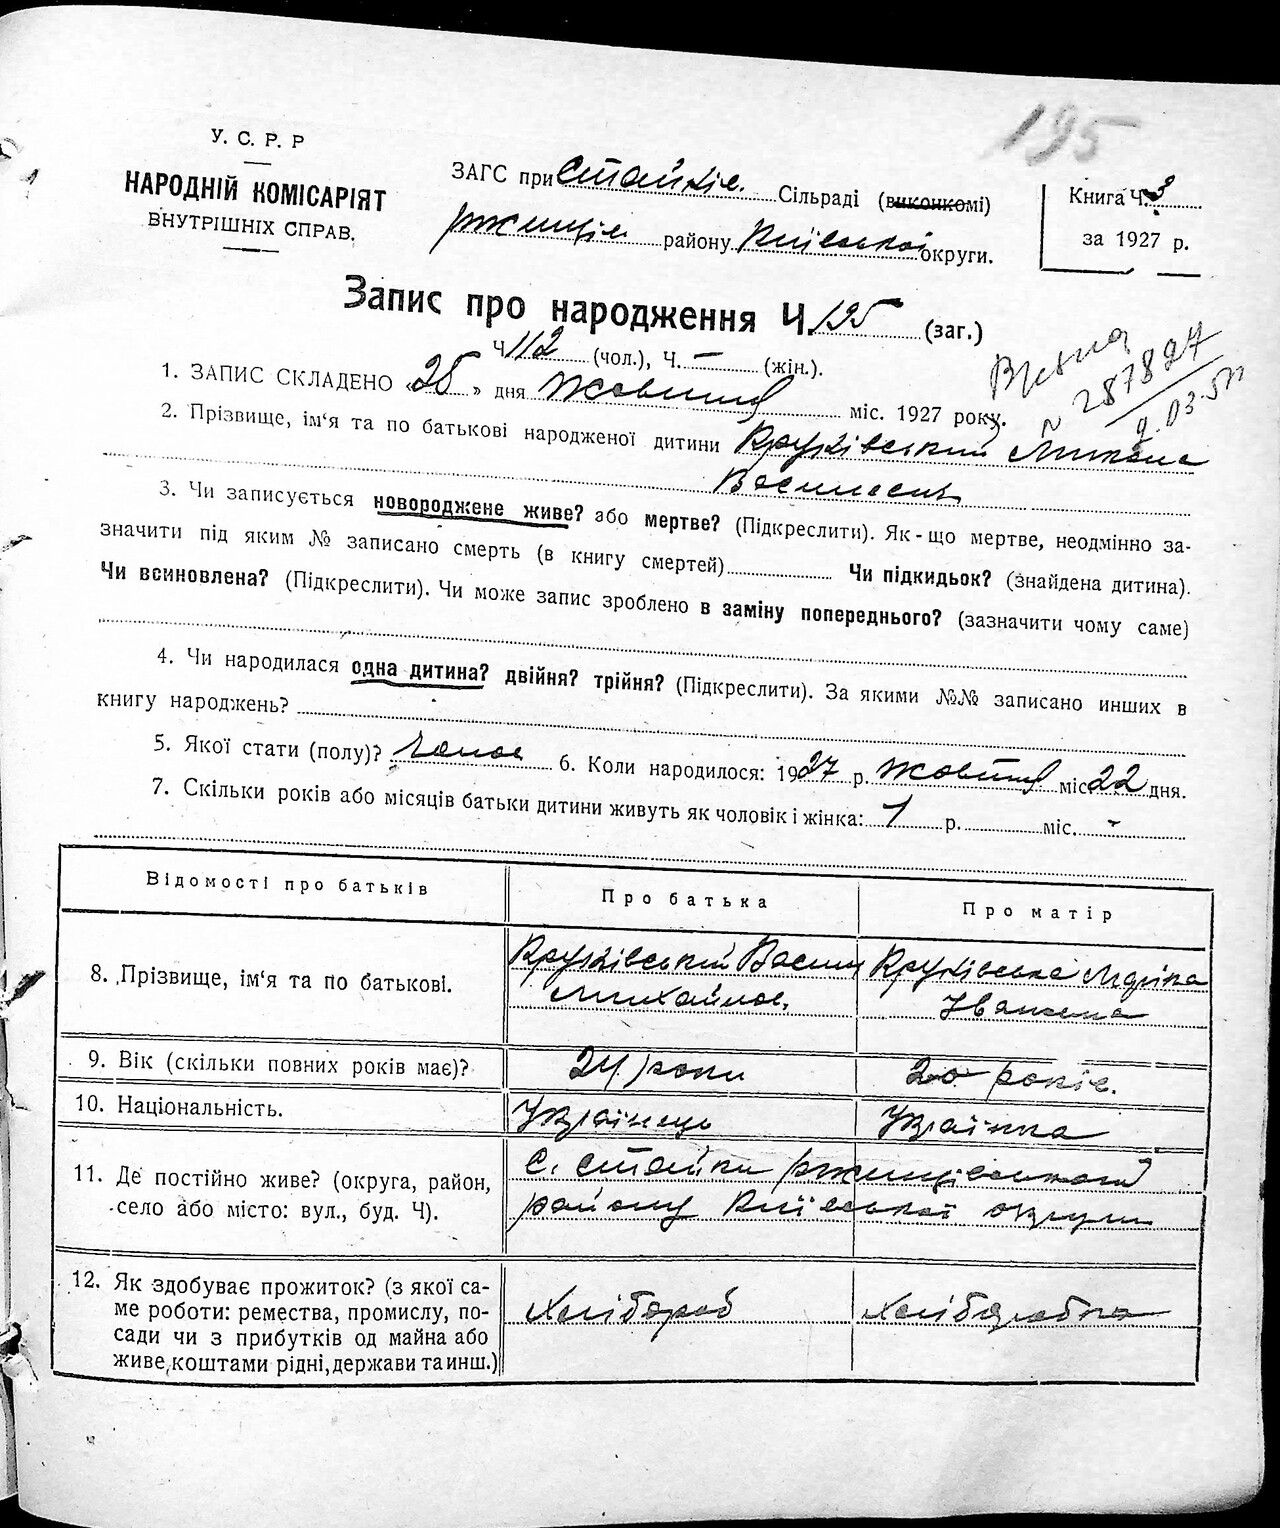 195
У. С. Р. Р
НАРОДНІЙ КОМІСАРІЯТ
ВНУТРІШНІХ СПРАВ.
ЗАГС при Стайків. Сільраді (виконкомі)
ржищів. району Київської округи.
Книга Ч. 3
за 1927 р.
Запис про народження Ч. 195 (заг.)
Ч 112 (чол.), Ч. – (жін.).
№ 287827
1. ЗАПИС СКЛАДЕНО «25» дня Жовтня міс. 1927 року.
2. Прізвище, ім‘я та по батькові народженої дитини Круківський Микола
Василевич
3. Чи записується новороджене живе? або мертве? (Підкреслити). Як-що мертве, неодмінно за-
значити під яким № записано смерть (в книгу смертей) Чи підкидьок? (знайдена дитина).
Чи всиновлена? (Підкреслити). Чи може запис зроблено в заміну попереднього? (зазначити чому саме)
4. Чи народилася одна дитина? двійня? трійня? (Підкреслити). За якими №№ записано инших в
книгу народжень?
5. Якої стати (полу)? чолов 6. Коли народилося: 1927 р. Жовтня міс 22 дня.
7. Скільки років або місяців батьки дитини живуть як чоловік і жінка: 1 р. міс. -
Відомості про батьків Про батька Про матір
8. Прізвище, ім‘я та по батькові. Круківський Василь Круківська Марія
Михайлов. Івановна
9. Вік (скільки повних років має)? 24 роки 20 років.
10. Національність. Українець Українка
11. Де постійно живе? (округа, район, с. Стайки ржищівського
село або місто: вул., буд. Ч). району Київської округи
12. Як здобуває прожиток? (з якої са- Хлібороб Хліборобка
ме роботи: ремества, промислу, по-
сади чи з прибутків од майна або
живе коштами рідні, держави та инш.)